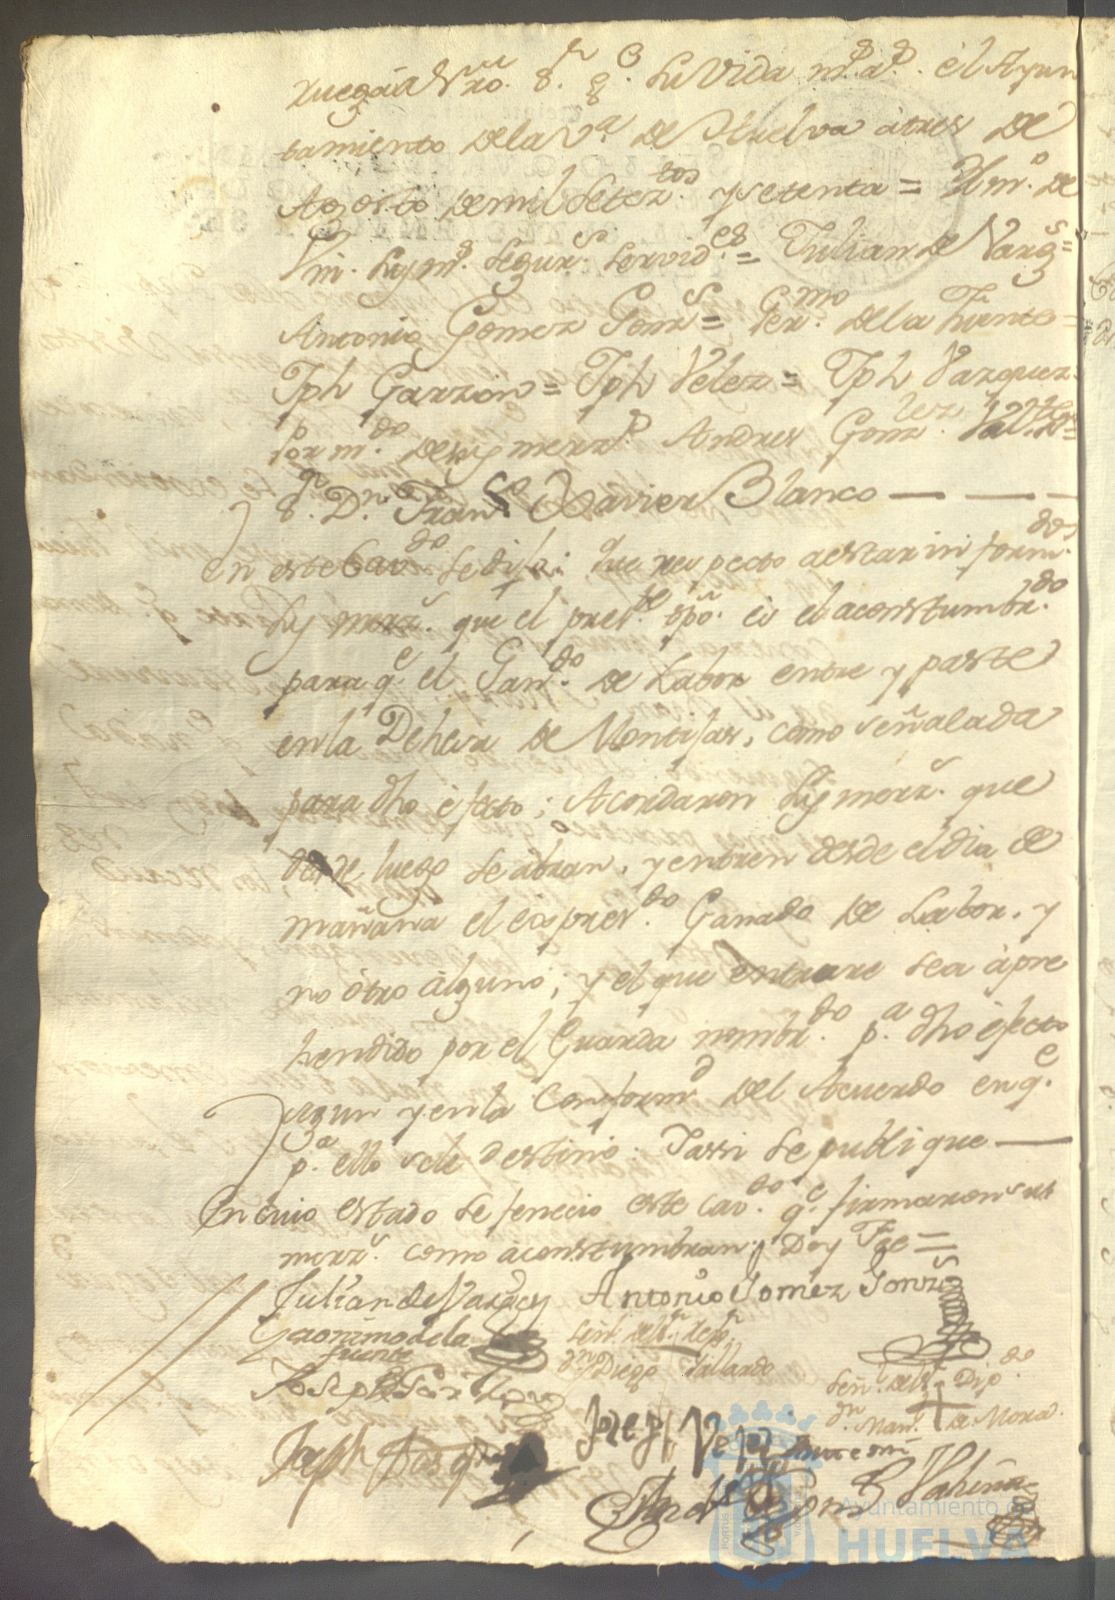 ruega á Nro. Sr. g.e la Vida ms. as. el Ayun
tamiento de la Va. de Huelva á tres de
Agosto de mil setez.tos y setenta = Ylmo. de
Vm. sus ms. segurs. servid.es = Julian de Vargs. =
Antonio Gomez Gonz. = Ger.mo de la Fuente =
Jph Garzon = Jph Velez = Jph Vazquez
Por m.do de sus merz.s Andres Gonz.lez
Sr. Dn. Fran.co Xavier Blanco
En este Cav.do se dijo: Que respecto a estar inform.dos
sus merz.s que el pres.te tpo. es el acostumbr.do
para q.e el Gan.do de Labor entre y paste
en la Dehesa de Montijas, como señalada
para dho efecto; Acordaron sus merz.s que
desde luego se abran, y entren desde el dia de
mañana el expres.do Ganado de Labor, y
no otro alguno; y el que entrare sea apre
hendido por el Guarda nombr.do p.a dho efecto
segun y en la Conform.d del Acuerdo en q.e
p.a ello se le destino. Y assi se publique
En cuio estado se fenecio este Cav.do q.e firmaron sus
merz.s como acostumbran; Doy Fee =
Julian de Vargas Antonio Gomez Gonz.s
Geronimo de la
fuente
dn. Diego Gallardo
Joseph Garzon
Señ. del Sr. Dip.do
dn. Man.l de Mora
Joseph Velez
Joseph Vasquez
Ante mi
Andres Gonz
Ayuntamiento de
HUELVA